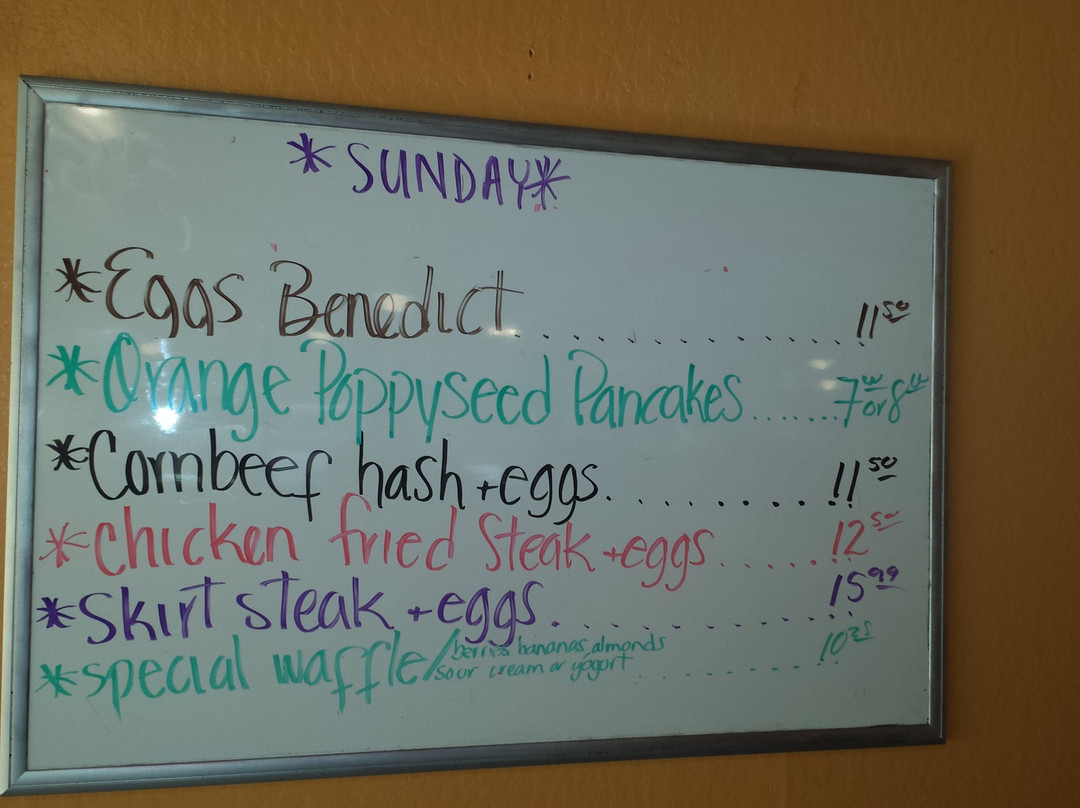 *SUNDAY*
*Eggs Benedict.............. 11 50
*Orange Poppyseed Pancakes.......7 or 8
*Cornbeef hash + eggs..........11 50
*chicken fried Steak + eggs......12 50
*Skirt steak + eggs............15 99
*special waffle/berries bananas, almonds
sour cream or yogort........10 25